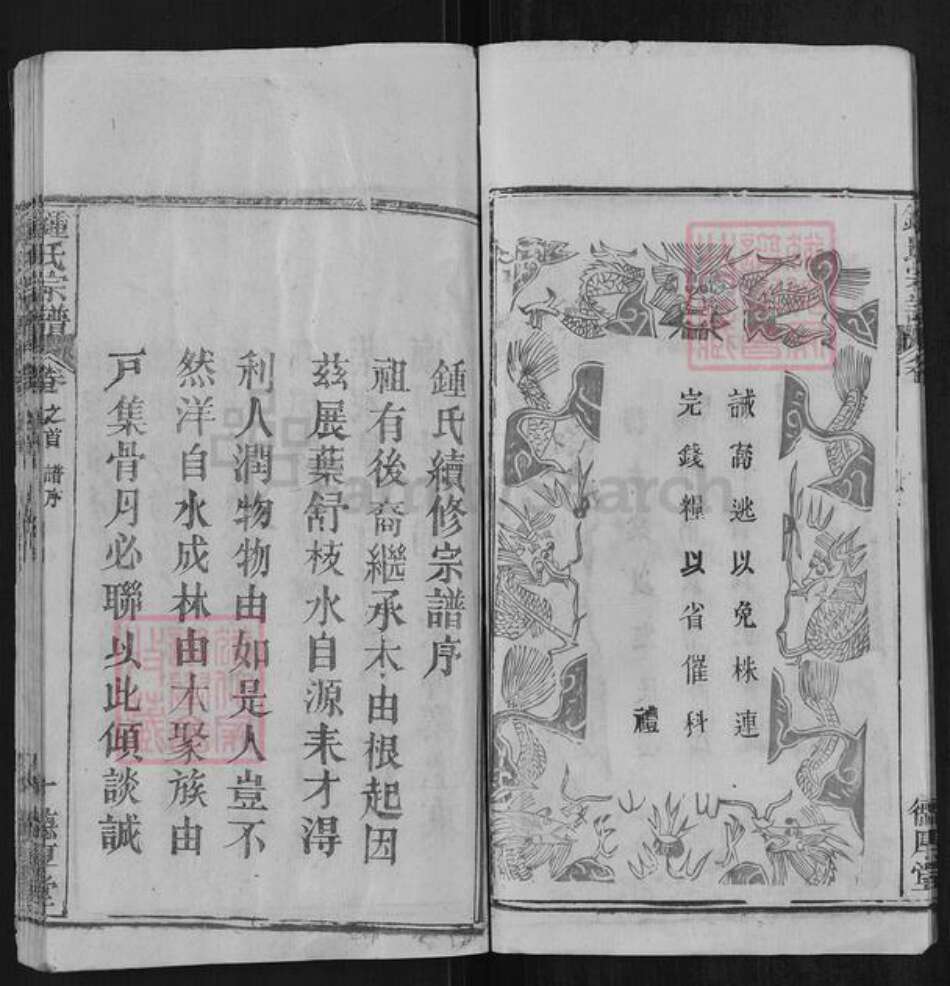 誡窩逃以免株連
完錢糧以省催科
禮
鍾氏續修宗譜序
祖有後裔繼承木由根起因
茲展葉舒枝水自源来才得
利人潤物物由如是人豈不
然洋自水成林由木聚族由
戸集骨月必聯以此傾談誠
鍾氏宗譜
卷之首 譜序